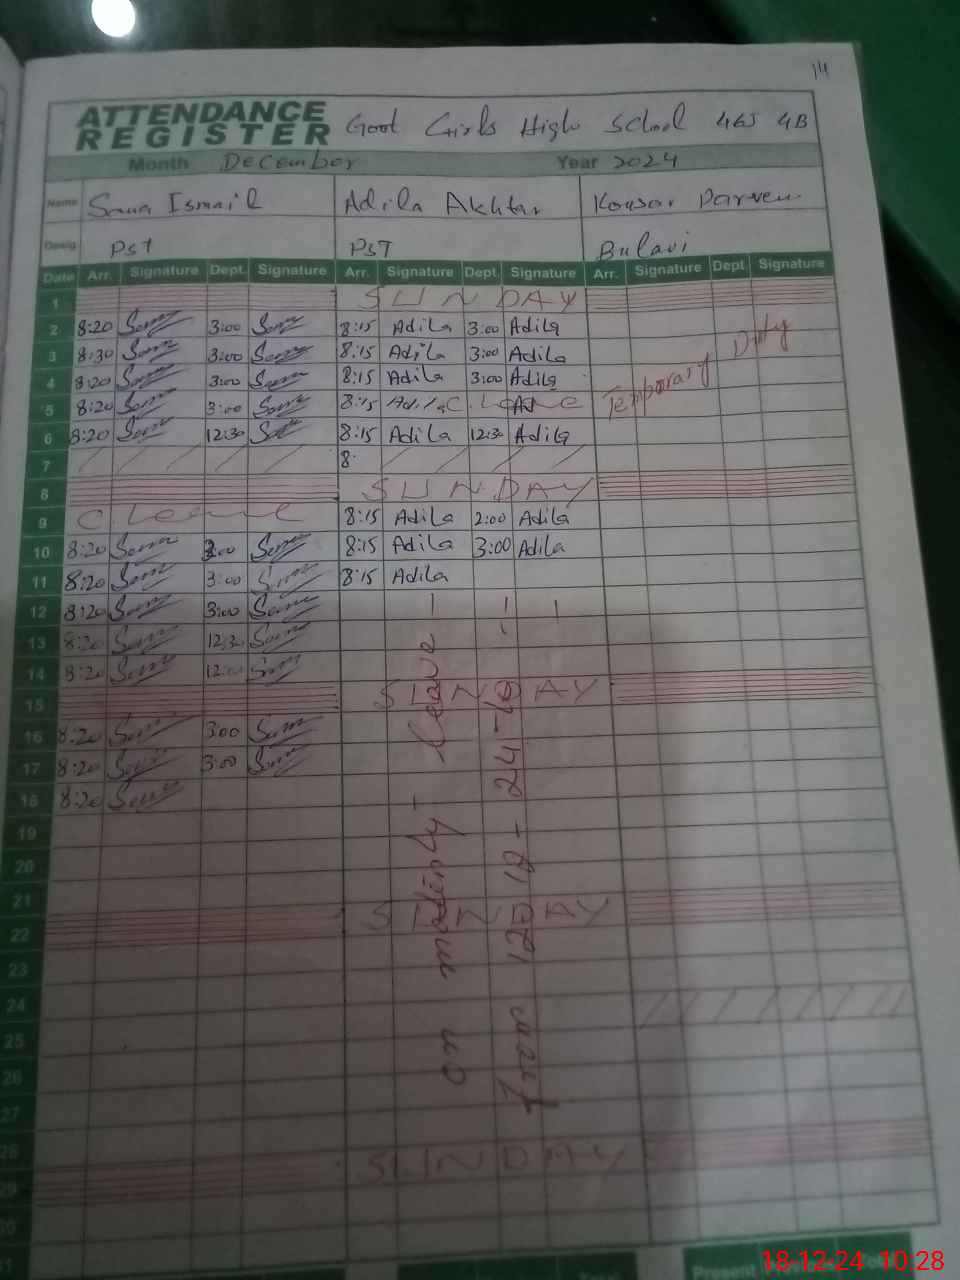 14
ATTENDANCE REGISTER Govt Girls High School 465 GB
Month December Year 2024
Name Sana Ismail Adila Akhtar Kousar Parveen
Desig PST PST Bulavi
Date Arr. Signature Dept. Signature Arr. Signature Dept. Signature Arr. Signature Dept Signature
1 SUNDAY
2 8:20 Sana 3:00 Sana 8:15 Adila 3:00 Adila
3 8:30 Sana 3:00 Sana 8:15 Adila 3:00 Adila
4 8:20 Sana 3:00 Sana 8:15 Adila 3:00 Adila
Temporary Duty
5 8:20 Sana 3:00 Sana 8:15 Adila C. Leave
6 8:20 Sana 12:30 Sana 8:15 Adila 12:30 Adila
7 8:
8 SUNDAY
9 C. Leave 8:15 Adila 2:00 Adila
10 8:20 Sana 3:00 Sana 8:15 Adila 3:00 Adila
11 8:20 Sana 3:00 Sana 8:15 Adila
12 8:20 Sana 3:00 Sana
13 8:20 Sana 12:30 Sana
14 8:20 Sana 12:00 Sana
15 SUNDAY
16 8:20 Sana 3:00 Sana
17 8:20 Sana 3:00 Sana
18 8:20 Sana
19
20
21
22 SUNDAY
23
24
25
26
27
28
29 SUNDAY
30
on matinty leave
from 12-12-24 to
Present
18-12-24 10:28